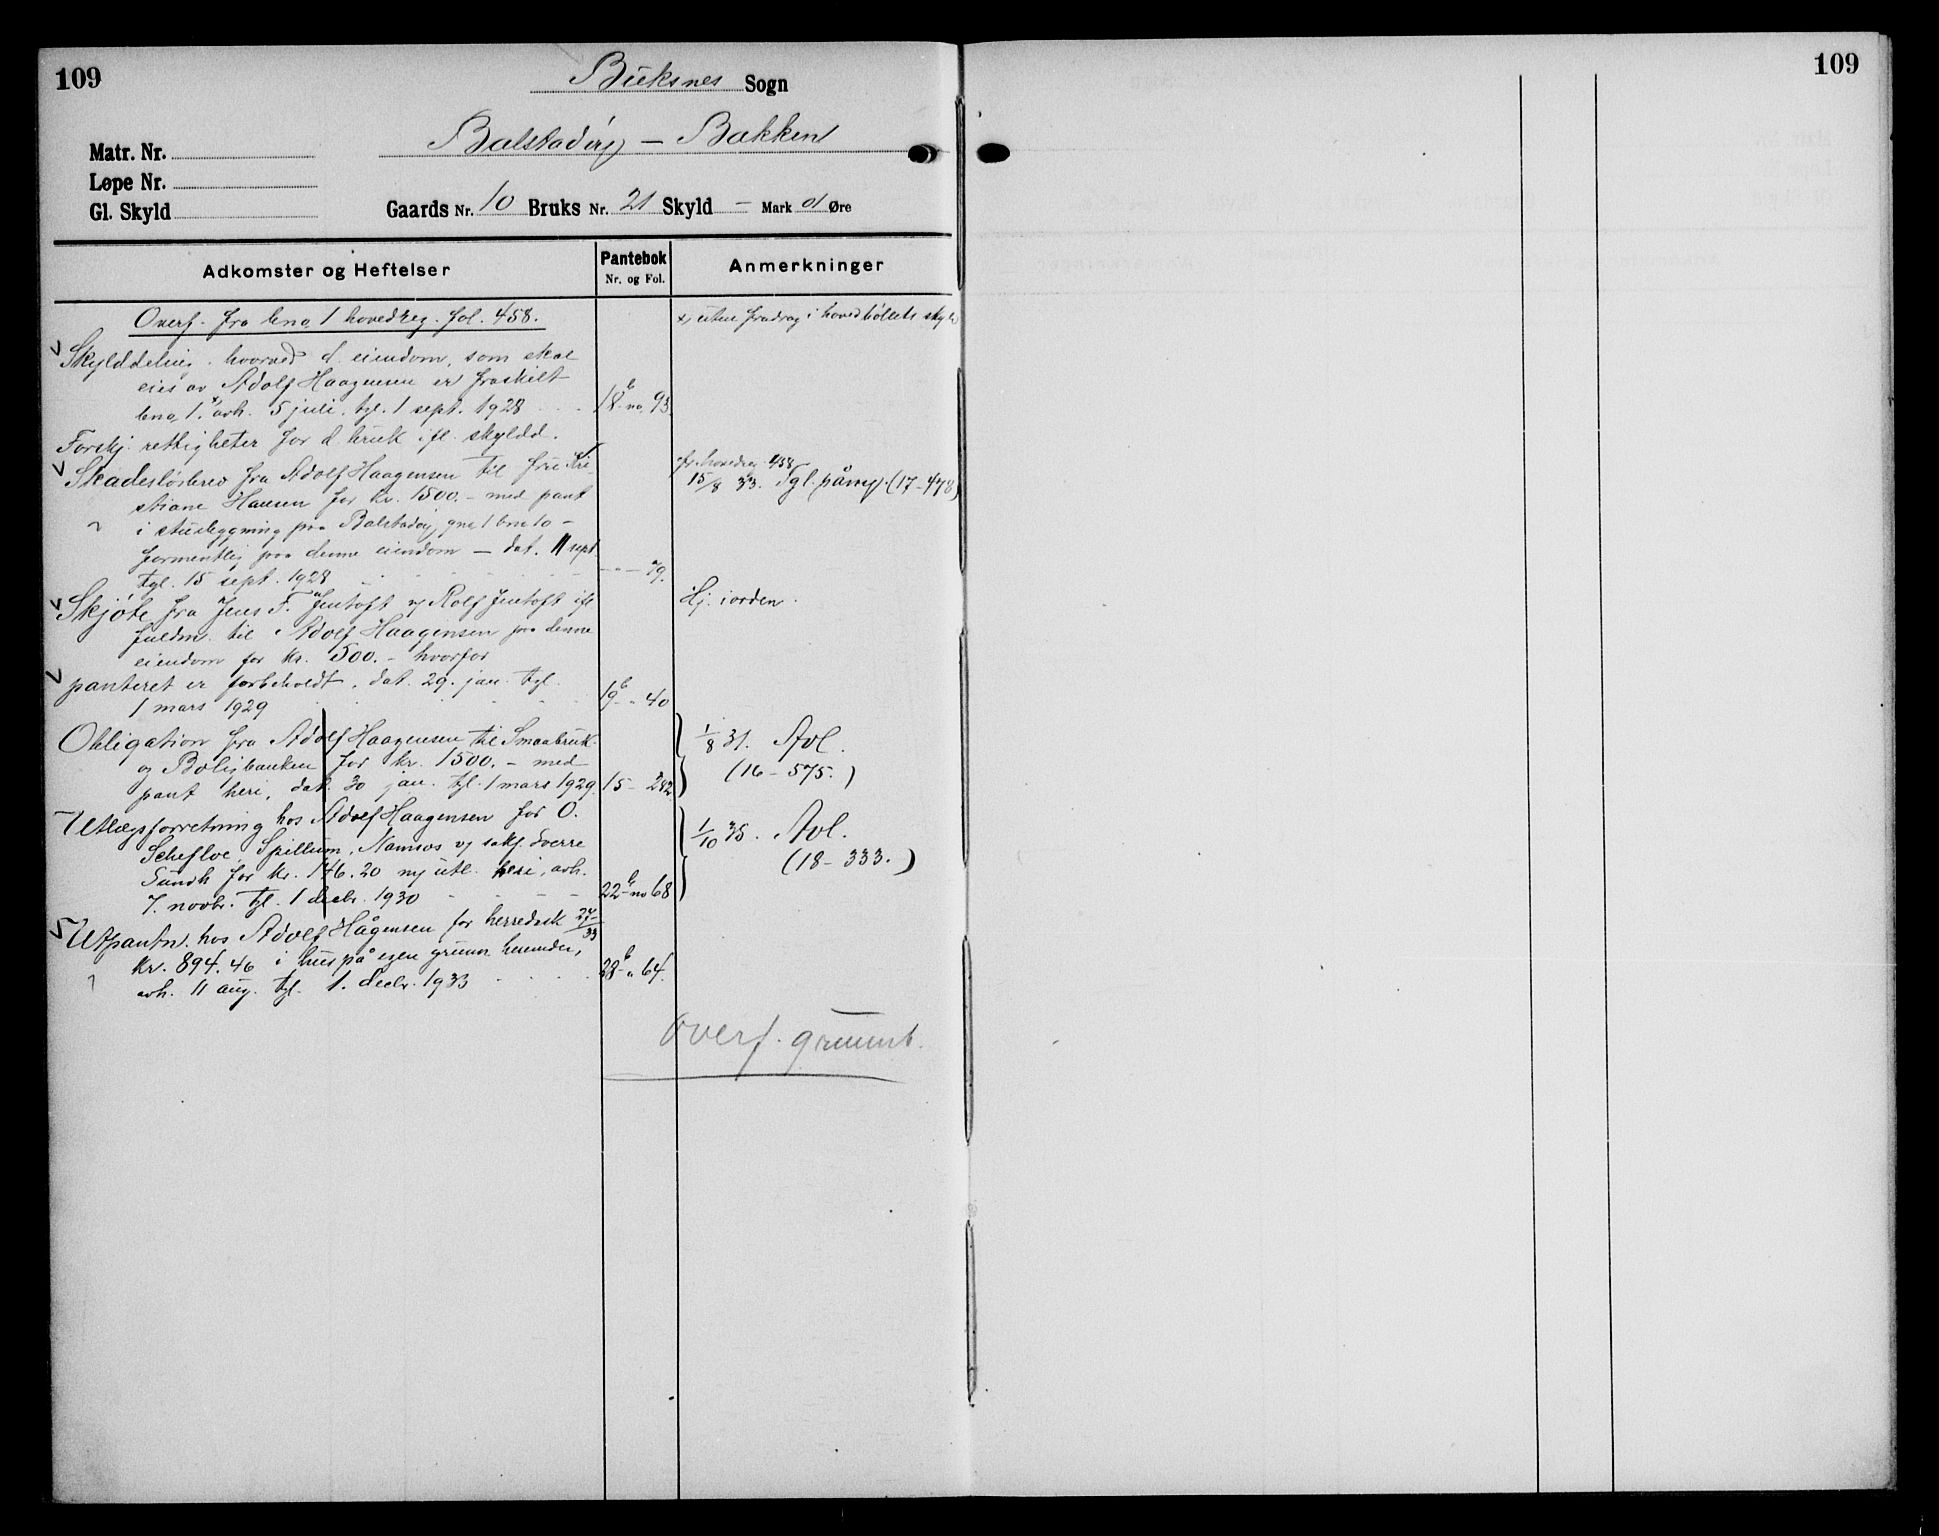 109
Buksnes Sogn
109
Balstadøy — Bakken
Matr. Nr.
Løpe Nr.
Gl. Skyld
Gaards Nr. 10 Bruks Nr. 21 Skyld — Mark 01 Øre
Adkomster og Heftelser
Pantebok
Nr. og Fol.
Anmerkninger
Overf. fra bno 1 hovedreg. fol. 458.
x) uten fradrag i hovedbølets skyld
Skylddeling, hvorved d. eiendom, som skal
eies av Adolf Haagensen er fraskilt
bno 1.x) avh. 5 juli. tgl. 1 sept. 1928
18b no 93.
Forskj. rettigheter for d. bruk ifl. skyldd.
Skadesløsbrev fra Adolf Haagensen til fru Kri-
stiane Hansen for kr. 1500.- med pant
i stuebygning paa Balstadøy, gno 1 bno 10 -
formentlig paa denne eiendom — dat. 11 sept
tgl. 15 sept. 1928
-"- - 79.
hovedreg. 458
15/8 33. Tgl. påny. (17-478)
Skjøte fra Jens F. Jentoft og Rolf Jentoft ifl
fuldm. til Adolf Haagensen paa denne
eiendom for kr. 500.- hvorfor
Hj. i orden.
panteret er forbeholdt, dat. 29. jan. tgl.
1 mars 1929
19b - " 40
Obligation fra Adolf Haagensen til Smaabruk-
og Boligbanken for kr. 1500.- med
pant heri, dat. 30 jan. tgl. 1 mars 1929.
15 - 282.
1/8 31. Avl.
(16 - 575.)
Utlægsforretning hos Adolf Haagensen for O.
Schefloe, Spillum, Namsos v/ sakf. Sverre
Sundh for kr. 146.20 m/ utl. heri, avh.
7. novbr. tgl. 1 decbr. 1930
22b no 68
1/10 35. Avl.
(18 - 333.)
Utpantn. hos Adolf Hågensen for herredssk 27/33
kr. 894.46 i hus på egen grunn herunder,
avh. 11 aug. tgl. 1. decbr. 1933
28b " 64.
Overf. grunnb.